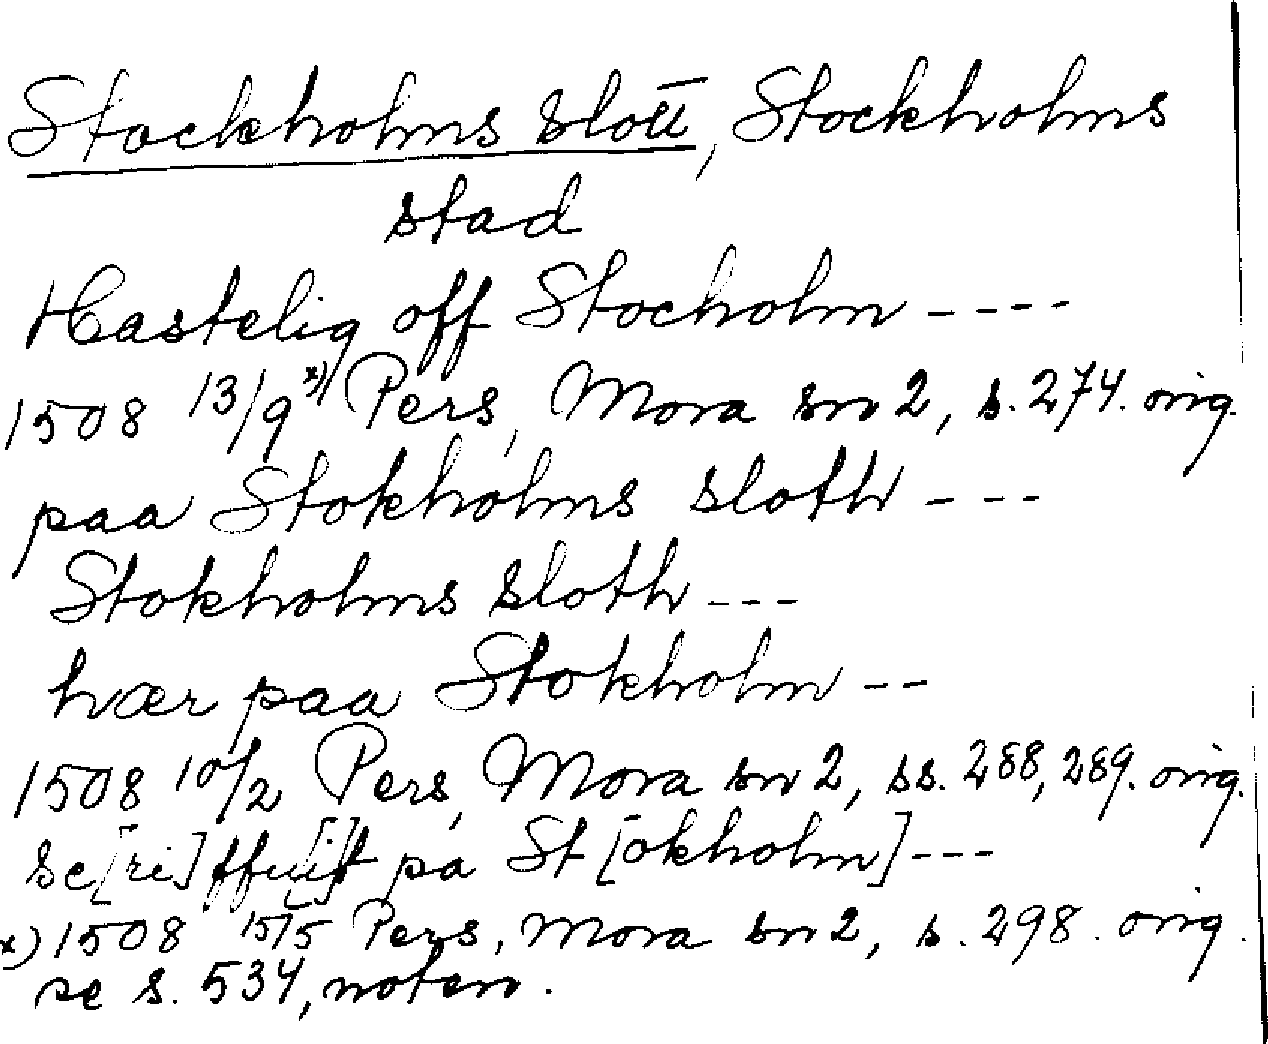 Stockholms slott, Stockholms
stad
Hastelig off Stocholm ----
1508 13/9 x) Pers, Mora sn 2, s. 274. orig.
paa Stokholms sloth ---
Stokholms sloth ---
hær paa Stokholm --
1508 10/2 Pers, Mora sn 2, ss. 288, 289. orig.
Sc[ri]ffu[i]t pa St[okholm] ---
x) 1508 15/5 Pers, Mora sn 2, s. 298. orig.
se s. 534, noten.